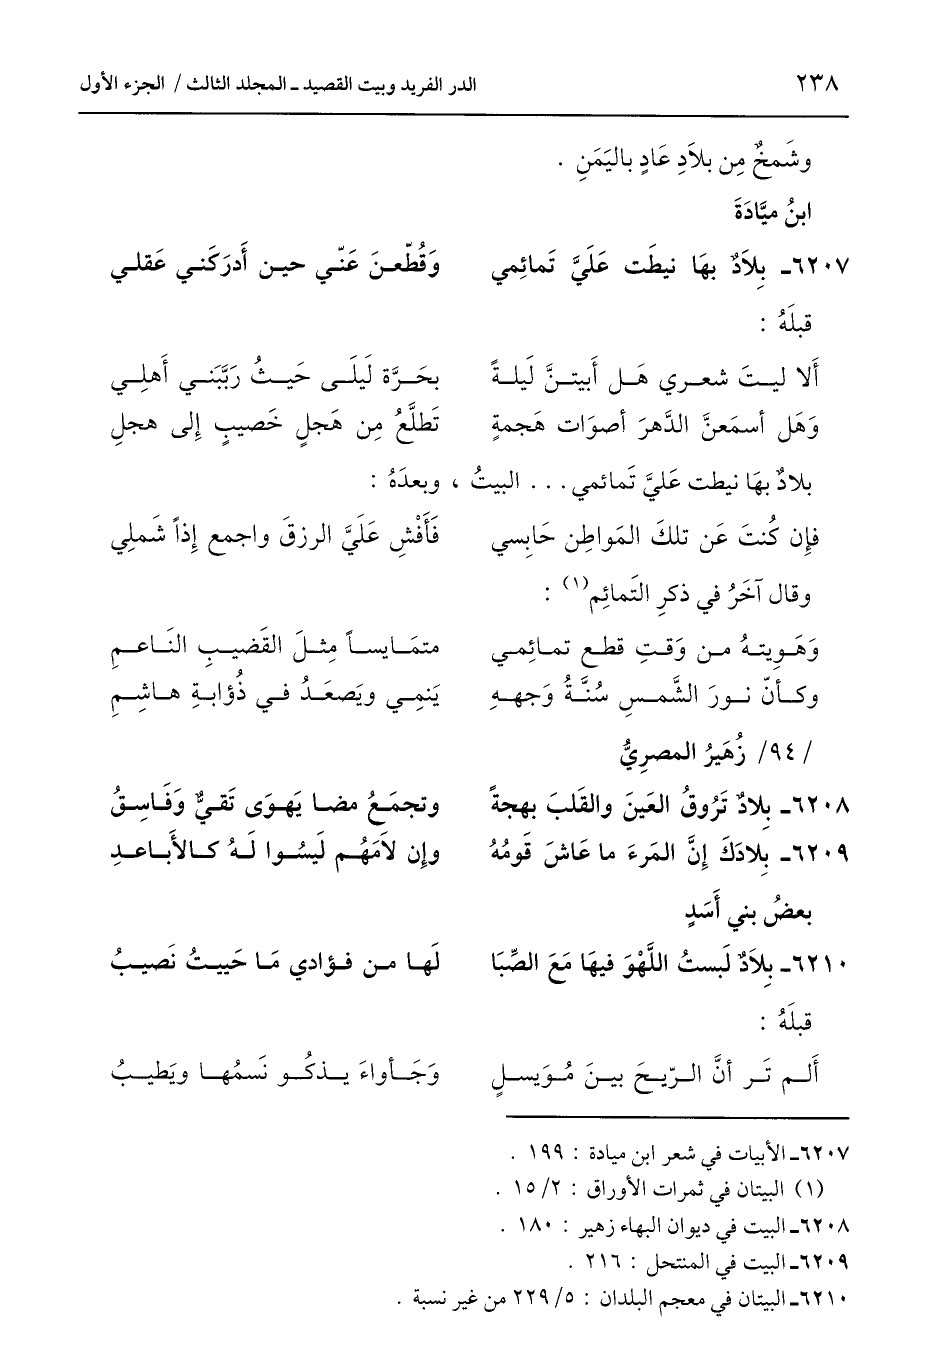 ٢٣٨ الدر الفريد وبيت القصيد ـ المجلد الثالث / الجزء الأول
وشَمخٌ مِن بلاَدِ عَادٍ باليَمَنِ .
ابنُ ميَّادَةَ
٦٢٠٧ـ بِلاَدٌ بهَا نيطَت عَلَيَّ تَمائِمي وَقُطّعنَ عَنّي حين أَدرَكَني عَقلي
قبلَهُ :
أَلا ليتَ شعري هَل أَبيتنَّ لَيلةً بحَرَّة لَيلَى حَيثُ رَبَّبَني أَهلِي
وَهَل أسمَعنَّ الدَّهرَ أصوَات هَجمةٍ تَطلَّعُ مِن هَجلٍ خَصيبٍ إلى هجلِ
بلادٌ بهَا نيطت عَليَّ تَمائمي . . . البيتُ ، وبعدَهُ :
فإن كُنتَ عَن تلكَ المَواطِن حَابسي فَأَفْشِ عَلَيَّ الرزقَ واجمع إذاً شَملِي
وقال آخَرُ في ذكرِ التَمائِمِ(١) :
وَهَويتهُ من وَقتِ قطع تمائمي متمَايساً مِثلَ القَضيبِ النَاعمِ
وكأنّ نورَ الشَّمسِ سُنَّةُ وَجههِ يَنمِي ويَصعَدُ في ذُؤابةِ هاشِمِ
/ ٩٤/ زُهَيرُ المصرِيُّ
٦٢٠٨ـ بِلادٌ تَرُوقُ العَينَ والقَلبَ بهجةً وتجمَعُ مضا يَهوَى تَقيٌّ وَفَاسِقُ
٦٢٠٩ـ بِلادَكَ إنَّ المَرءَ ما عَاشَ قَومُهُ وإن لاَمَهُم لَيسُوا لَهُ كالأَباعدِ
بعضُ بني أَسَدٍ
٦٢١٠ـ بِلاَدٌ لَبستُ اللَّهوَ فيهَا مَعَ الصِّبَا لَها من فؤادي مَا حَييتُ نَصيبُ
قبلَهُ :
أَلم تَر أنَّ الرّيحَ بينَ مُوَيسلٍ وَجَأواءَ يذكُو نَسمُها ويَطيبُ
٦٢٠٧ـ الأبيات في شعر ابن ميادة : ١٩٩ .
(١) البيتان في ثمرات الأوراق : ٢/ ١٥ .
٦٢٠٨ـ البيت في ديوان البهاء زهير : ١٨٠ .
٦٢٠٩ـ البيت في المنتحل : ٢١٦ .
٦٢١٠ـ البيتان في معجم البلدان : ٥/ ٢٢٩ من غير نسبة .